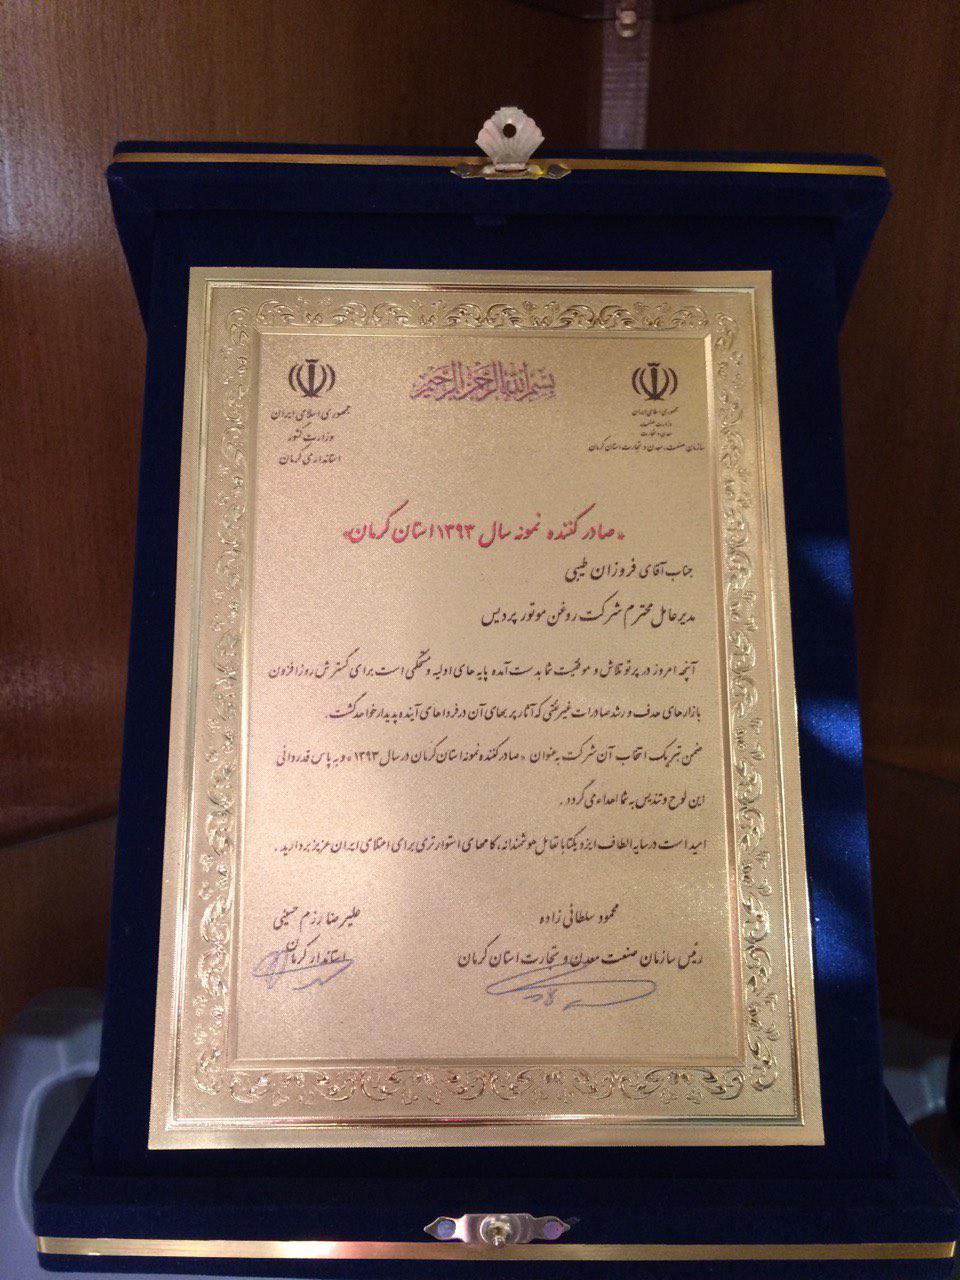 بسم الله الرحمن الرحیم
جمهوری اسلامی ایران
وزارت صنعت
معدن و تجارت
سازمان صنعت، معدن و تجارت استان کرمان
جمهوری اسلامی ایران
وزارت کشور
استانداری کرمان
«صادر کننده نمونه سال ۱۳۹۳ استان کرمان»
جناب آقای فروزان طیبی
مدیر عامل محترم شرکت روغن موتور پردیس
آنچه امروز در پرتو تلاش و موفقیت شما بدست آمده پایه های اولیه و مستحکمی است برای گسترش روز افزون
بازارهای هدف و رشد صادرات غیر نفتی که آثار پر بهای آن در فرداهای آینده پدیدار خواهد گشت.
ضمن تبریک انتخاب آن شرکت به عنوان «صادر کننده نمونه استان کرمان در سال ۱۳۹۳» و به پاس قدردانی
این لوح و تندیس به شما اهداء می گردد.
امید است در سایه الطاف ایزد یکتا با تعامل هوشمندانه، گامهای استوارتری برای اعتلای ایران عزیز بردارید.
محمود سلطانی زاده
رئیس سازمان صنعت معدن و تجارت استان کرمان
علیرضا رزم حسینی
استاندار کرمان